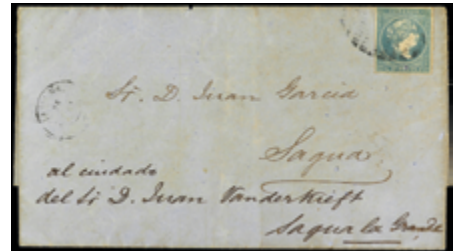 Sr. D. Juan Garcia
Sagua
al cuidado
del Sr D. Juan Vanderkieft
Sagua la Grande